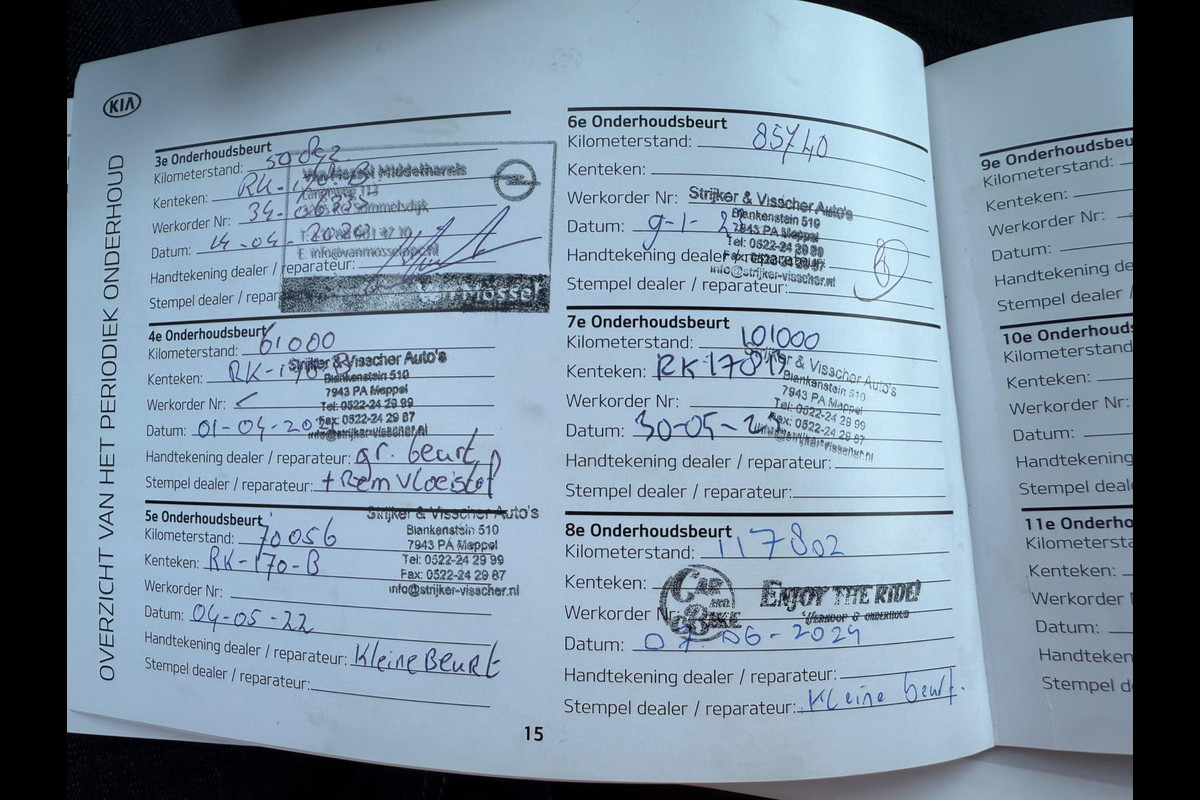 KIA
OVERZICHT VAN HET PERIODIEK ONDERHOUD
3e Onderhoudsbeurt
Kilometerstand:
Kenteken: RK-170-B
Werkorder Nr:
Datum: 14-04-2020
Handtekening dealer / reparateur:
Stempel dealer / reparateur
Van Mossel Middelharnis
Sommelsdijk
E: info@vanmosselopel.nl
Van Mossel
4e Onderhoudsbeurt
Kilometerstand: 61000
Kenteken: RK-170-B
Werkorder Nr:
Datum: 01-04-2021
Handtekening dealer / reparateur: gr. beurt
Stempel dealer / reparateur: + Remvloeistof
Strijker & Visscher Auto's
Blankenstein 510
7943 PA Meppel
Tel: 0522-24 29 99
Fax: 0522-24 29 87
info@strijker-visscher.nl
5e Onderhoudsbeurt
Kilometerstand: 70056
Kenteken: RK-170-B
Werkorder Nr:
Datum: 04-05-22
Handtekening dealer / reparateur: Kleine Beurt
Stempel dealer / reparateur:
Strijker & Visscher Auto's
Blankenstein 510
7943 PA Meppel
Tel: 0522-24 29 99
Fax: 0522-24 29 87
info@strijker-visscher.nl
6e Onderhoudsbeurt
Kilometerstand: 85740
Kenteken:
Werkorder Nr:
Datum: 9-1-
Handtekening dealer / reparateur:
Stempel dealer / reparateur:
Strijker & Visscher Auto's
Blankenstein 510
7943 PA Meppel
Tel: 0522-24 29 99
Fax: 0522-24 29 87
info@strijker-visscher.nl
7e Onderhoudsbeurt
Kilometerstand: 101000
Kenteken: RK170B
Werkorder Nr:
Datum: 30-05-
Handtekening dealer / reparateur:
Stempel dealer / reparateur:
Strijker & Visscher Auto's
Blankenstein 510
7943 PA Meppel
Tel: 0522-24 29 99
Fax: 0522-24 29 87
info@strijker-visscher.nl
8e Onderhoudsbeurt
Kilometerstand: 117802
Kenteken:
Werkorder Nr:
Datum: 07-06-2024
Handtekening dealer / reparateur:
Stempel dealer / reparateur: Kleine beurt.
CAR AND BIKE
ENJOY THE RIDE!
VERKOOP & ONDERHOUD
15
9e Onderhoudsbeu
Kilometerstand:
Kenteken:
Werkorder Nr:
Datum:
Handtekening de
Stempel dealer /
10e Onderhouds
Kilometerstand
Kenteken:
Werkorder Nr:
Datum:
Handtekening
Stempel deal
11e Onderho
Kilometersta
Kenteken:
Werkorder N
Datum:
Handteken
Stempel d